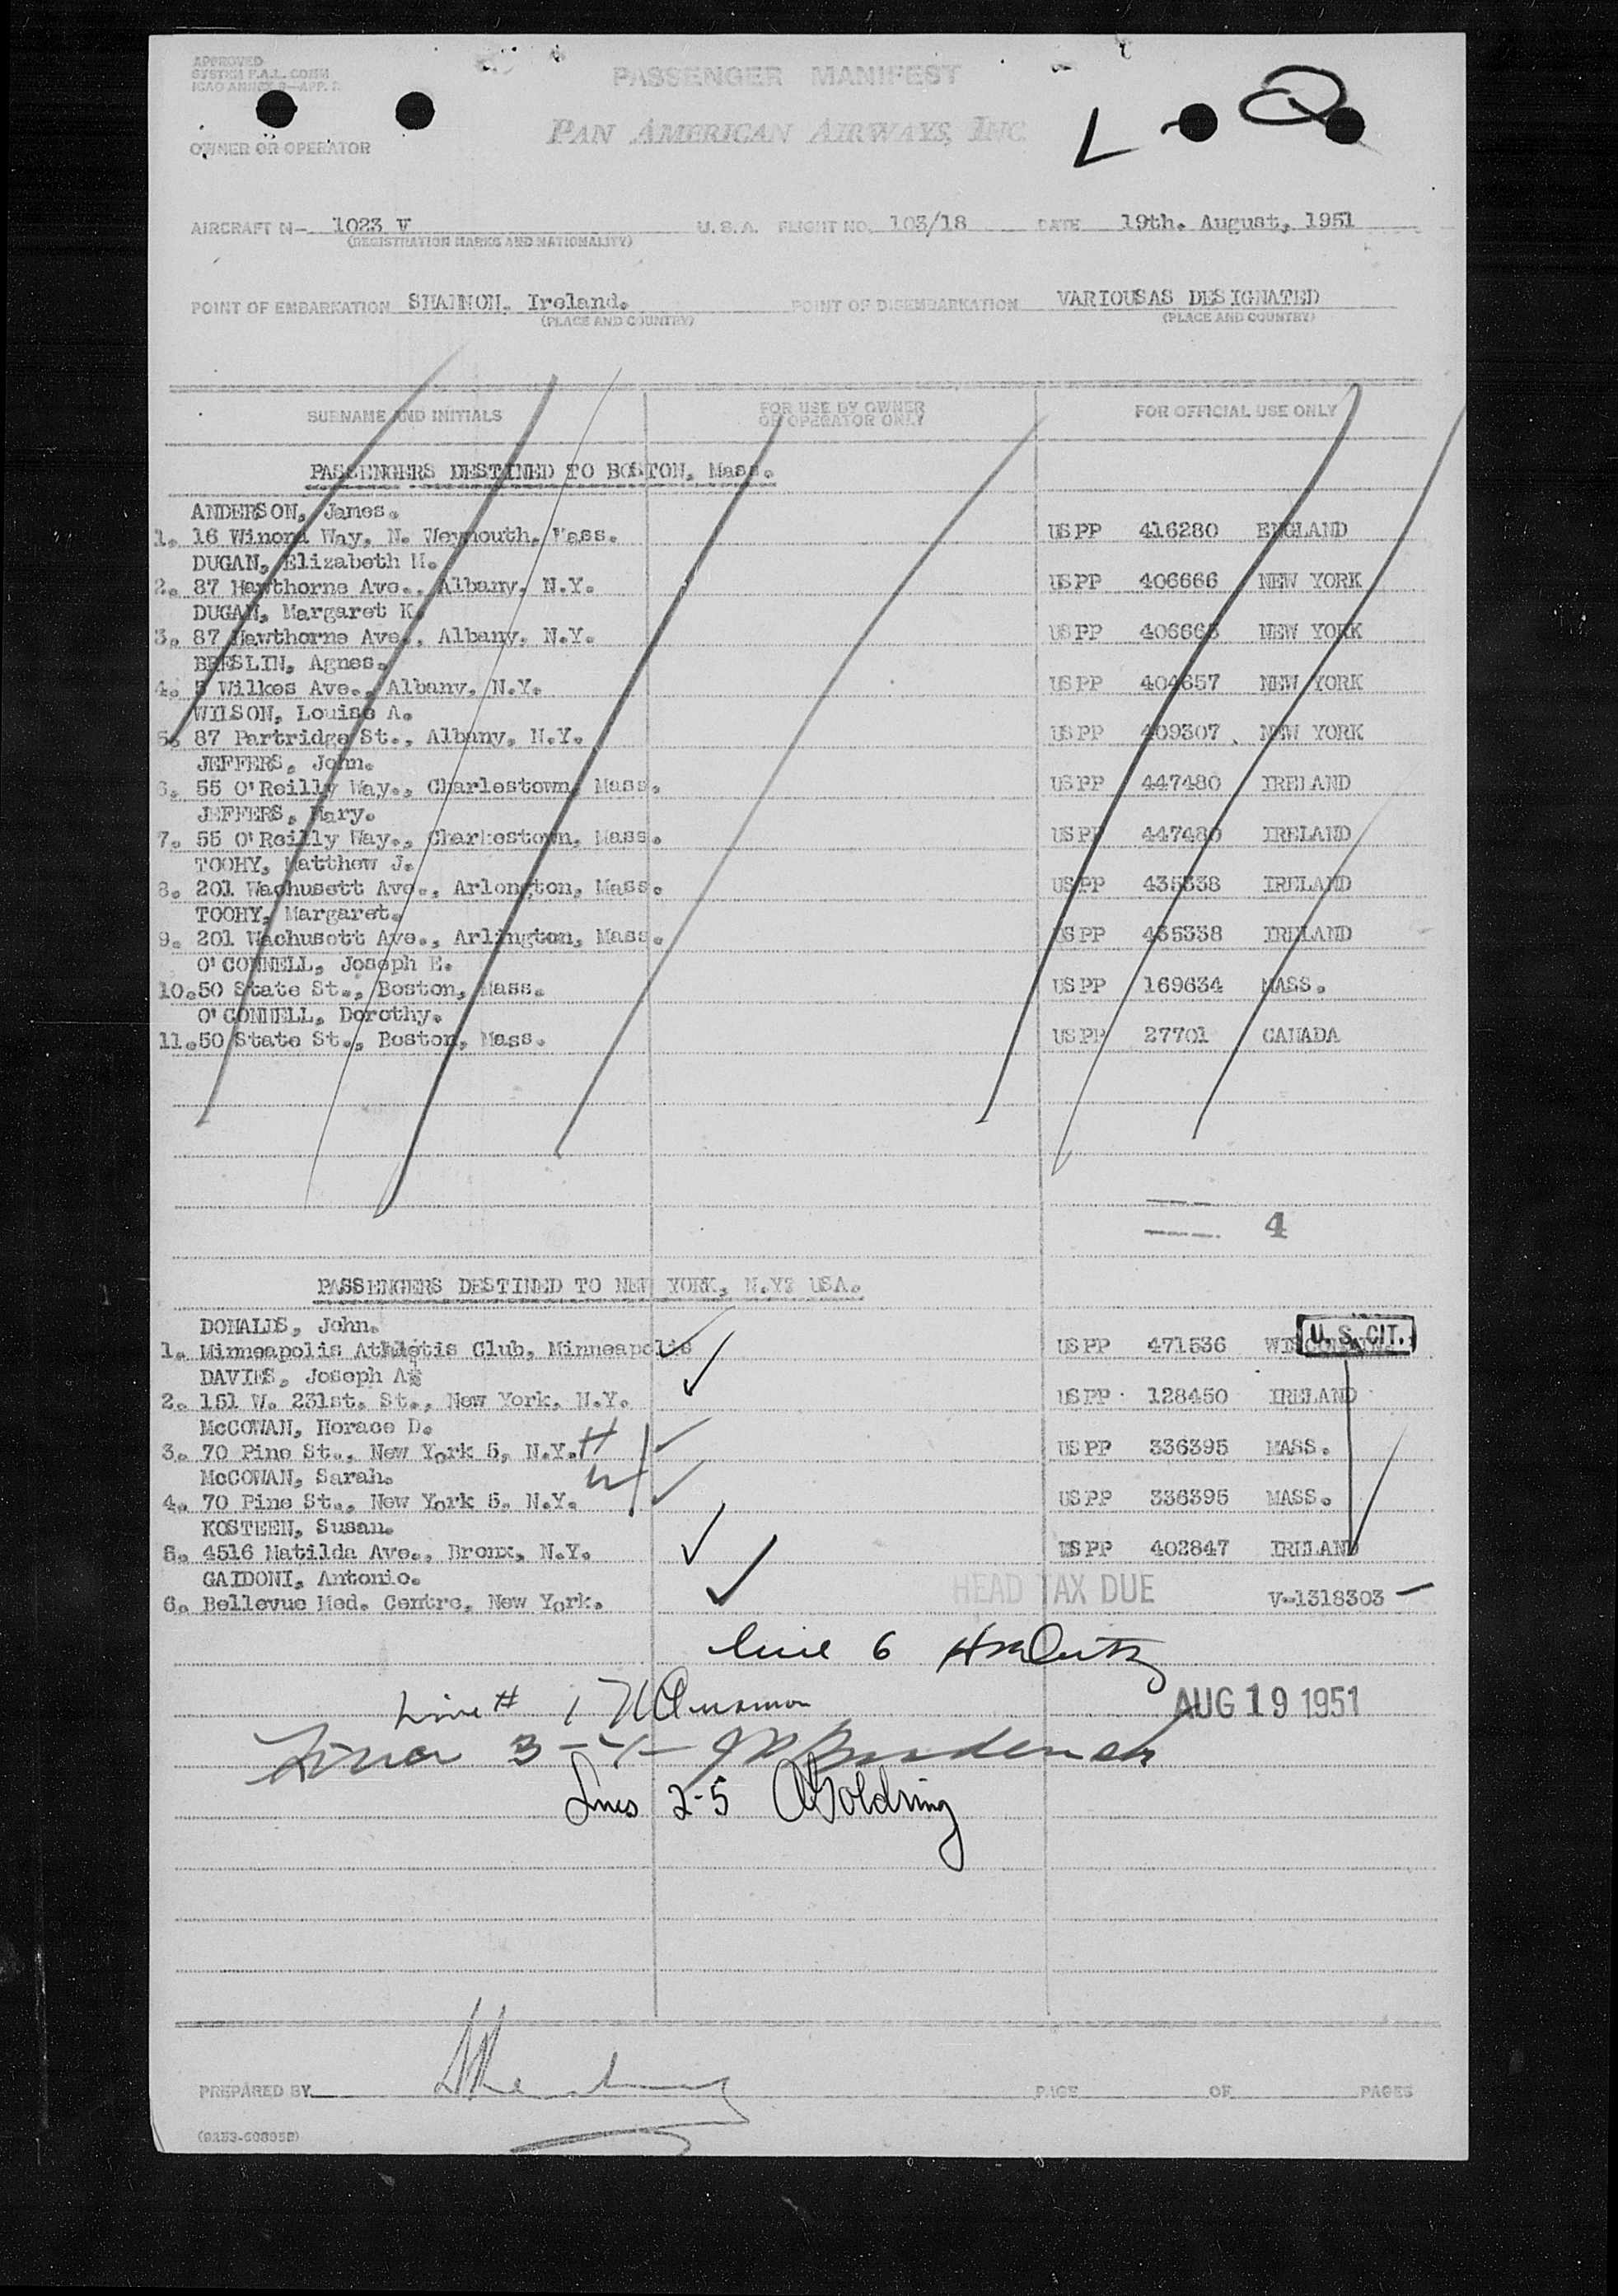 APPROVED
SYSTEM F.A.L. COMM
ICAO ANNEX 9—APP. 2
PASSENGER MANIFEST
PAN AMERICAN AIRWAYS, INC
OWNER OR OPERATOR
AIRCRAFT N— 1023 V U.S.A. FLIGHT NO. 103/18 DATE 19th. August, 1951
(REGISTRATION MARKS AND NATIONALITY)
POINT OF EMBARKATION SHANNON. Ireland. POINT OF DISEMBARKATION VARIOUSAS DESIGNATED
(PLACE AND COUNTRY) (PLACE AND COUNTRY)
SURNAME AND INITIALS FOR USE BY OWNER OR OPERATOR ONLY FOR OFFICIAL USE ONLY
PASSENGERS DESTINED TO BOSTON, Mass.
ANDERSON, James.
1. 16 Winona Way, N. Weymouth, Mass. USPP 416280 ENGLAND
DUGAN, Elizabeth M.
2. 87 Hawthorne Ave., Albany, N.Y. USPP 406666 NEW YORK
DUGAN, Margaret K.
3. 87 Hawthorne Ave., Albany, N.Y. USPP 406665 NEW YORK
BRESLIN, Agnes.
4. 5 Wilkes Ave., Albany, N.Y. USPP 404657 NEW YORK
WILSON, Louise A.
5. 87 Partridge St., Albany, N.Y. USPP 409307 NEW YORK
JEFFERS, John.
6. 55 O'Reilly Way., Charlestown, Mass. USPP 447480 IRELAND
JEFFERS, Mary.
7. 55 O'Reilly Way., Charlestown, Mass. USPP 447480 IRELAND
TOOHY, Matthew J.
8. 201 Wachusett Ave., Arlongton, Mass. USPP 435338 IRELAND
TOOHY, Margaret.
9. 201 Wachusett Ave., Arlington, Mass. USPP 435338 IRELAND
O'CONNELL, Joseph E.
10.50 State St., Boston, Mass. USPP 169634 MASS.
O'CONNELL, Dorothy.
11.50 State St., Boston, Mass. USPP 27701 CANADA
4
PASSENGERS DESTINED TO NEW YORK, N.Y. USA.
DONALDS, John.
1. Minneapolis Athletis Club, Minneapolis USPP 471536 WISCONSIN U.S. CIT.
DAVIES, Joseph A.
2. 151 W. 231st. St., New York, N.Y. USPP 128450 IRELAND
McCOWAN, Horace D.
3. 70 Pine St., New York 5, N.Y. H USPP 336395 MASS.
McCOWAN, Sarah.
4. 70 Pine St., New York 5. N.Y. W USPP 336395 MASS.
KOSTEEN, Susan.
5. 4516 Matilda Ave., Bronx, N.Y. USPP 402847 IRELAND
GAIDONI, Antonio.
6. Bellevue Med. Centre, New York. HEAD TAX DUE V-1318303
line 6
Line # 1
AUG 19 1951
Lines 3-4-
Lines 2-5 Goldring
PREPARED BY PAGE OF PAGES